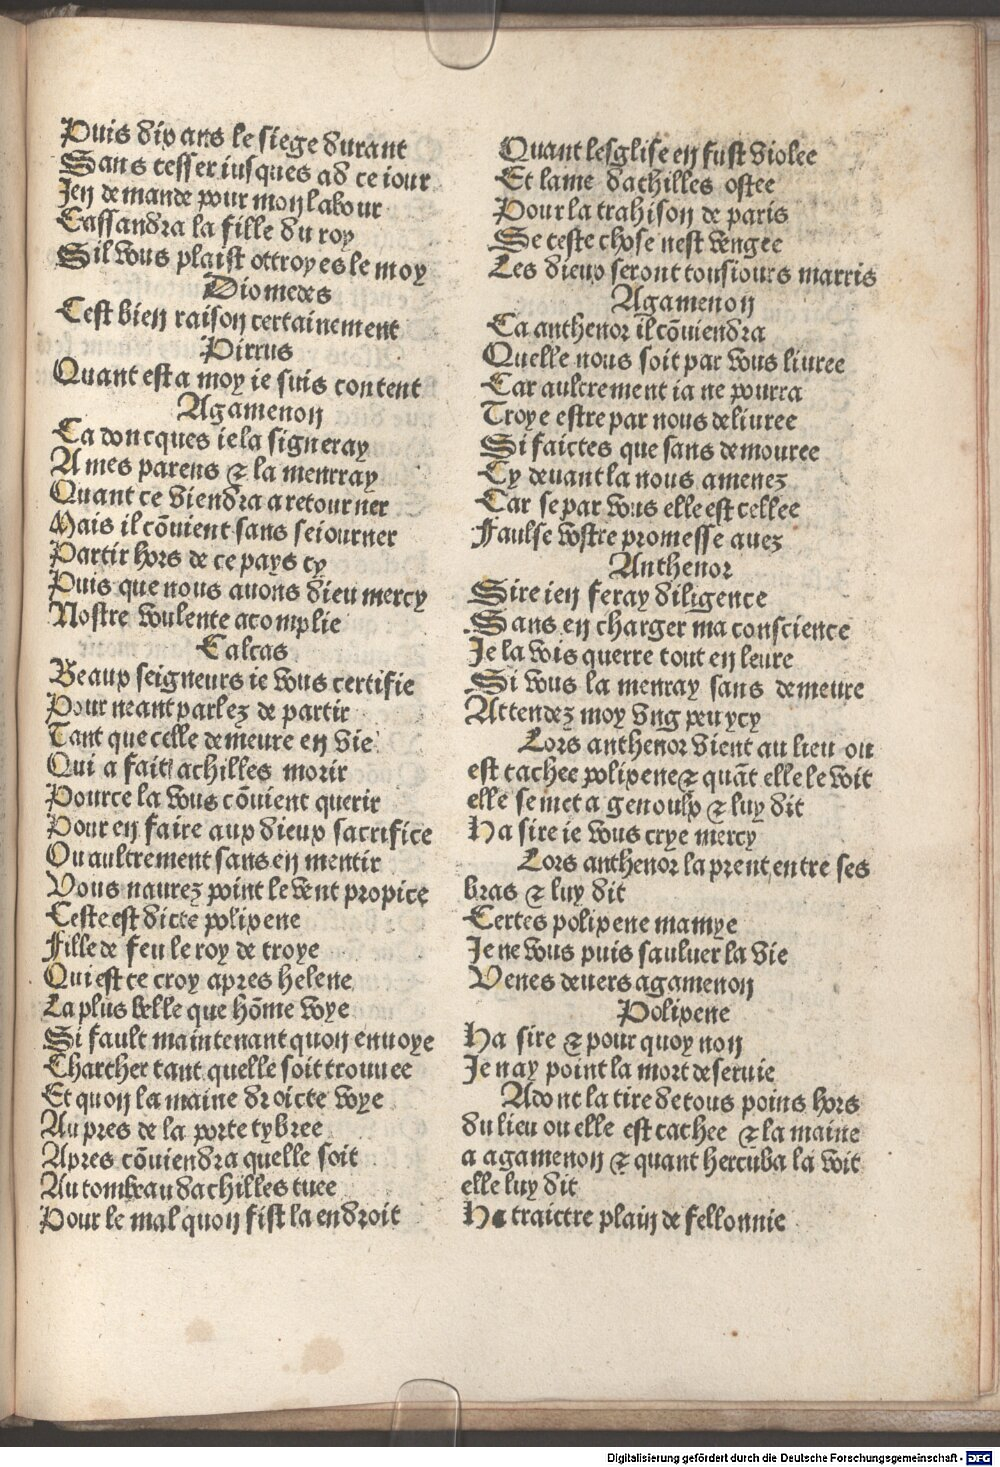 Puis dix ans le siege durant
Sans cesser iusques ad ce iour
Jen demande pour mon labour
Cassandra la fille du roy
Sil vous plaist ottroyes le moy
Diomedes
Cest bien raison certainement
Pirrus
Quant est a moy ie suis content
Agamenon
Ca doncques ie la signeray
A mes parens & la menrray
Quant ce viendra a retourner
Mais il cōuient sans seiourner
Partir hors de ce pays cy
Puis que nous auons dieu mercy
Nostre voulente acomplie
Calcas
Beaux seigneurs ie vous certifie
Pour neant parlez de partir
Tant que celle demeure en vie
Qui a fait achilles morir
Pource la vous cōuient querir
Pour en faire aux dieux sacrifice
Ou aultrement sans en mentir
Vous naurez point le vent propice
Ceste est dicte polixene
Fille de feu le roy de troye
Qui est ce croy apres helene
La plus belle que hōme voye
Si fault maintenant quon enuoye
Chercher tant quelle soit trouuee
Et quon la maine droicte voye
Au pres de la porte tybree
Apres cōuiendra quelle soit
Au tombeau dachilles tuee
Pour le mal quon fist la endroit
Quant lesglise en fust violee
Et lame dachilles ostee
Pour la trahison de paris
Se ceste chose nest vengee
Les dieux seront tousiours marris
Agamenon
Ca anthenor il cōuiendra
Quelle nous soit par vous liuree
Car aulcrement ia ne pourra
Troye estre par nous deliuree
Si faictes que sans demouree
Cy deuant la nous amenez
Car se par vous elle est cellee
Faulse vostre promesse auez
Anthenor
Sire ien feray diligence
Sans en charger ma conscience
Je la vois querre tout en leure
Si vous la menray sans demeure
Attendez moy vng peu ycy
Lors anthenor vient au lieu ou
est cachee polixene & quāt elle le voit
elle se met a genoulx & luy dit
Ha sire ie vous crye mercy
Lors anthenor la prent entre ses
bras & luy dit
Certes polixene mamye
Je ne vous puis sauluer la vie
Venes deuers agamenon
Polixene
Ha sire & pour quoy non
Je nay point la mort deseruie
Adont la tire de tous poins hors
du lieu ou elle est cachee & la maine
a agamenon & quant hercuba la voit
elle luy dit
Ha traictre plain de fellonnie
Digitalisierung gefördert durch die Deutsche Forschungsgemeinschaft - DFG